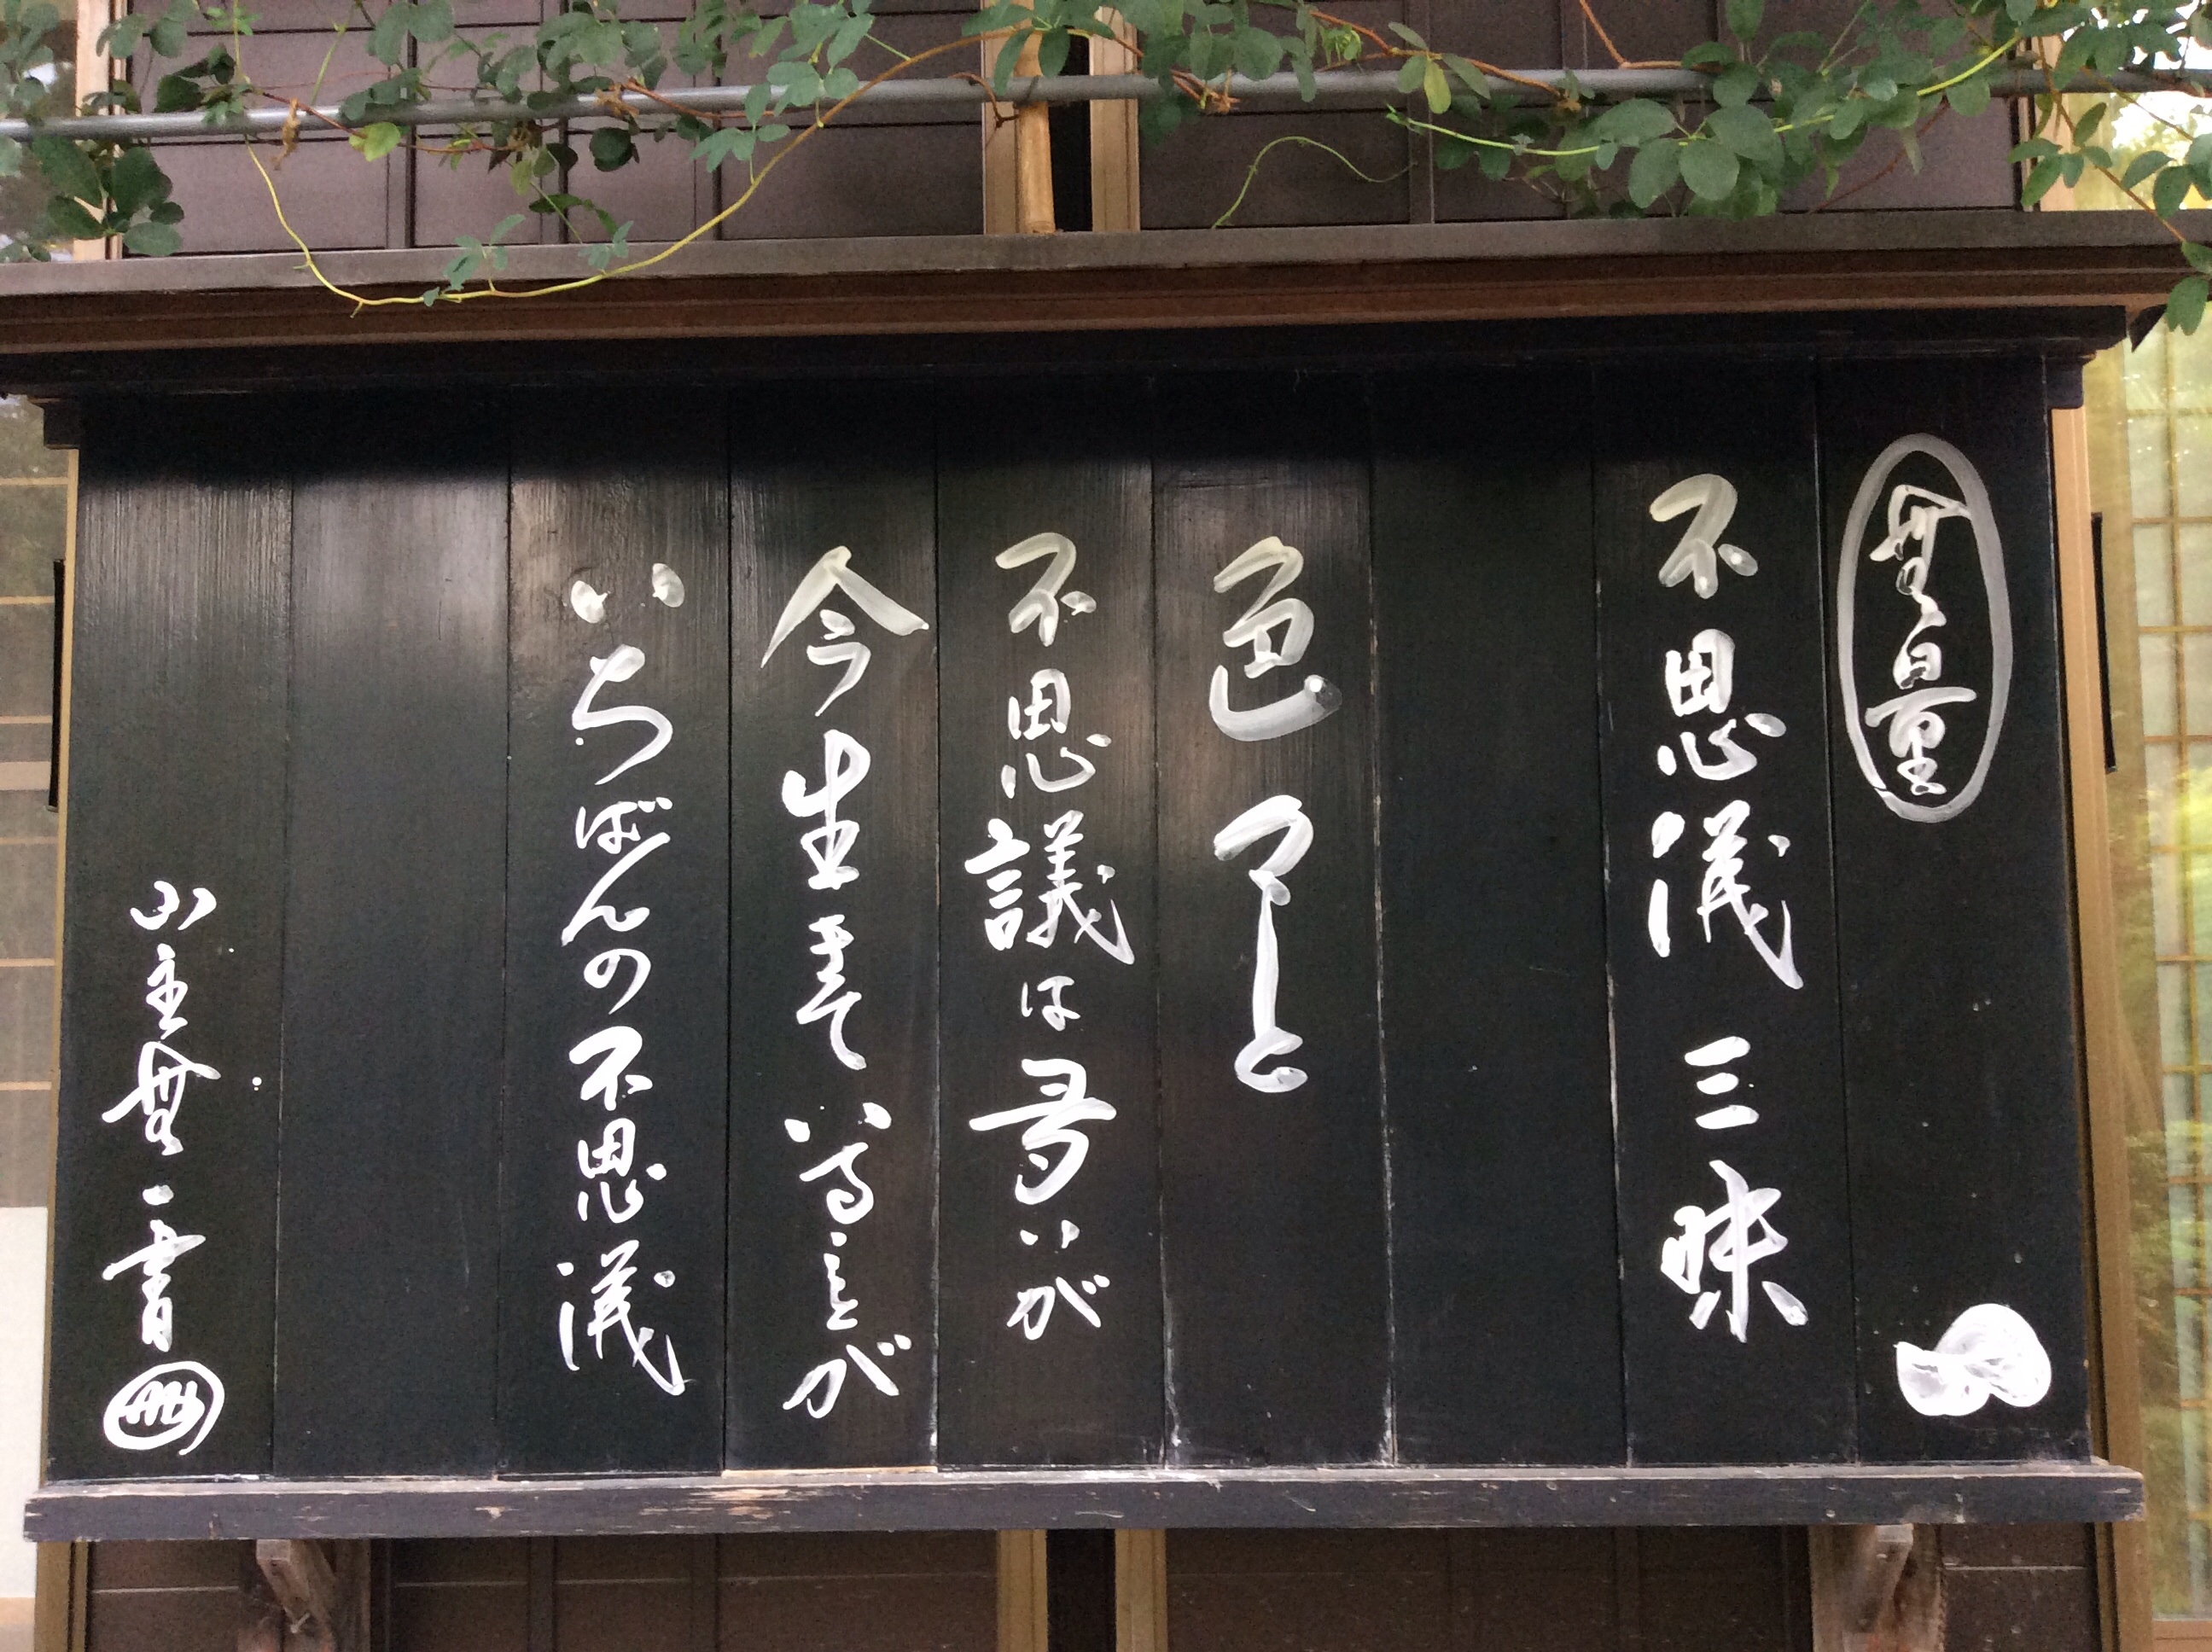 無量
不思議三昧
色々と
不思議は多いが
今生きていることが
いちばんの不思議
山主無一書